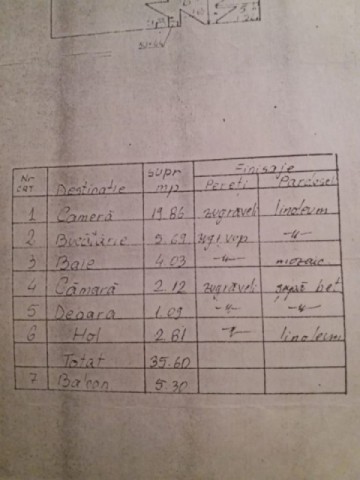 Finisaje
Nr crt Destinatie supr mp Pereti Pardosel
1 Cameră 19.86 zugraveli linoleum
2 Bucătărie 5.69 zugr. vop -"-
3 Baie 4.03 -"- mozaic
4 Cămară 2.12 zugraveli bet
5 Debara 1.09 -"- -"-
6 Hol 2.81 -"- linoleum
Total 35.60
7 Balcon 5.30